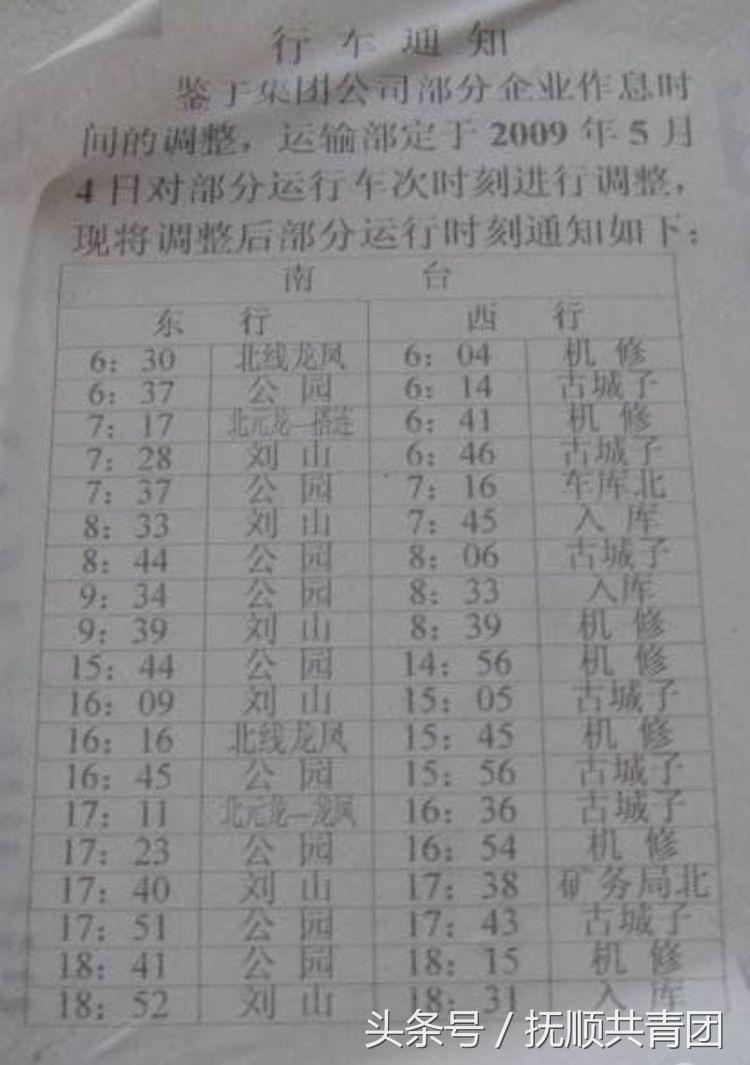 行车通知
鉴于集团公司部分企业作息时
间的调整，运输部定于 2009 年 5 月
4 日对部分运行车次时刻进行调整，
现将调整后部分运行时刻通知如下：
南 台
东 行 西 行
6：30 北线龙凤 6：04 机 修
6：37 公 园 6：14 古城子
7：17 北元龙—搭连 6：41 机 修
7：28 刘 山 6：46 古城子
7：37 公 园 7：16 车库北
8：33 刘 山 7：45 入 库
8：44 公 园 8：06 古城子
9：34 公 园 8：33 入库
9：39 刘 山 8：39 机 修
15：44 公 园 14：56 机 修
16：09 刘 山 15：05 古城子
16：16 北线龙凤 15：45 机 修
16：45 公 园 15：56 古城子
17：11 北元龙—龙凤 16：36 古城子
17：23 公 园 16：54 机 修
17：40 刘 山 17：38 矿务局北
17：51 公 园 17：43 古城子
18：41 公 园 18：15 机 修
18：52 刘 山 18：31 入 库
头条号 / 抚顺共青团